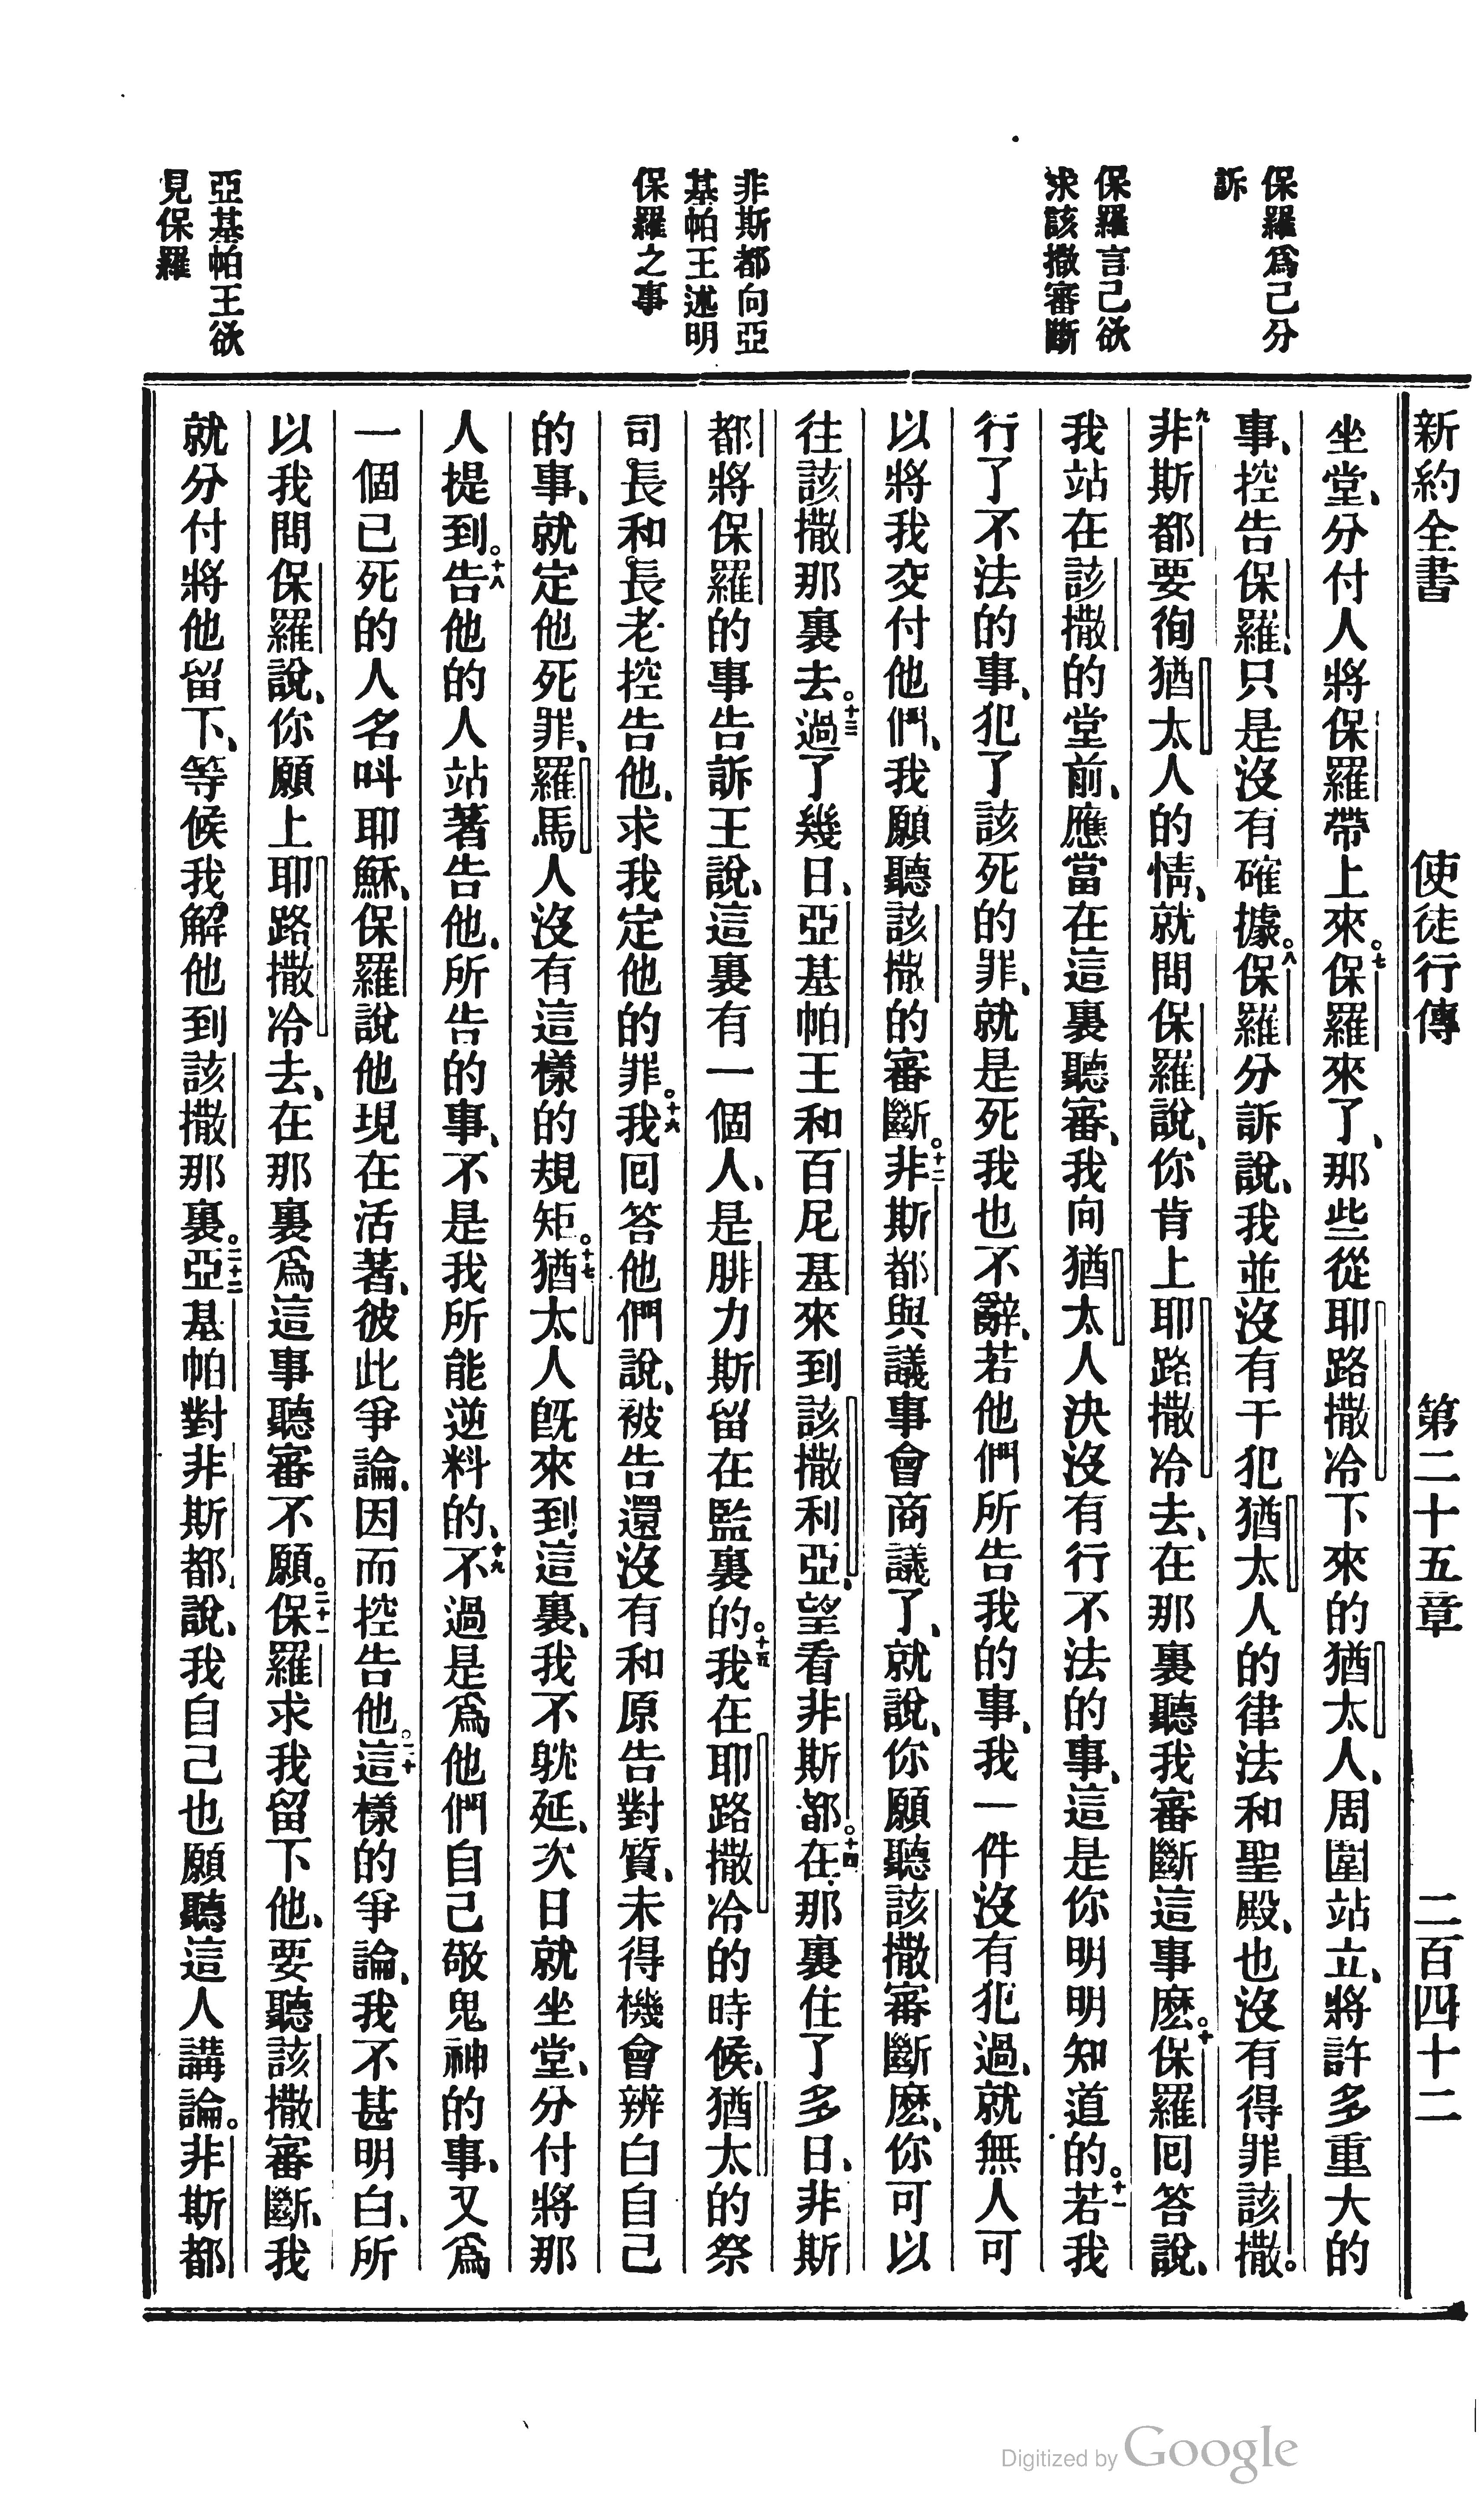 新約全書 使徒行傳 第二十五章 二百四十二
保羅爲己分
訴
保羅言己欲
求該撒審斷
非斯都向亞
基帕王述明
保羅之事
亞基帕王欲
見保羅
坐堂、分付人將保羅帶上來。七保羅來了、那些從耶路撒冷下來的猶太人、周圍站立、將許多重大的
事、控告保羅、只是沒有確據。八保羅分訴說、我並沒有干犯猶太人的律法和聖殿、也沒有得罪該撒。
九非斯都要徇猶太人的情、就問保羅說、你肯上耶路撒冷去、在那裏聽我審斷這事麽。十保羅囘答說、
我站在該撒的堂前、應當在這裏聽審、我向猶太人決沒有行不法的事、這是你明明知道的。十一若我
行了不法的事、犯了該死的罪、就是死我也不辭、若他們所告我的事、我一件沒有犯過、就無人可
以將我交付他們、我願聽該撒的審斷。十二非斯都與議事會商議了、就說、你願聽該撒審斷麽、你可以
往該撒那裏去。十三過了幾日、亞基帕王和百尼基來到該撒利亞、望看非斯都。十四在那裏住了多日、非斯
都將保羅的事告訴王說、這裏有一個人、是腓力斯留在監裏的。十五我在耶路撒冷的時候、猶太的祭
司長和長老控告他、求我定他的罪。十六我囘答他們說、被告還沒有和原告對質、未得機會辨白自己
的事、就定他死罪、羅馬人沒有這樣的規矩。十七猶太人旣來到這裏、我不躭延、次日就坐堂、分付將那
人提到。十八告他的人站著告他、所告的事、不是我所能逆料的、十九不過是爲他們自己敬鬼神的事、又爲
一個已死的人名呌耶穌、保羅說他現在活著、彼此爭論、因而控告他。二十這樣的爭論、我不甚明白、所
以我問保羅說、你願上耶路撒冷去、在那裏爲這事聽審不願。二十一保羅求我留下他、要聽該撒審斷、我
就分付將他留下、等候我解他到該撒那裏。二十二亞基帕對非斯都說、我自己也願聽這人講論。非斯都
Digitized by Google